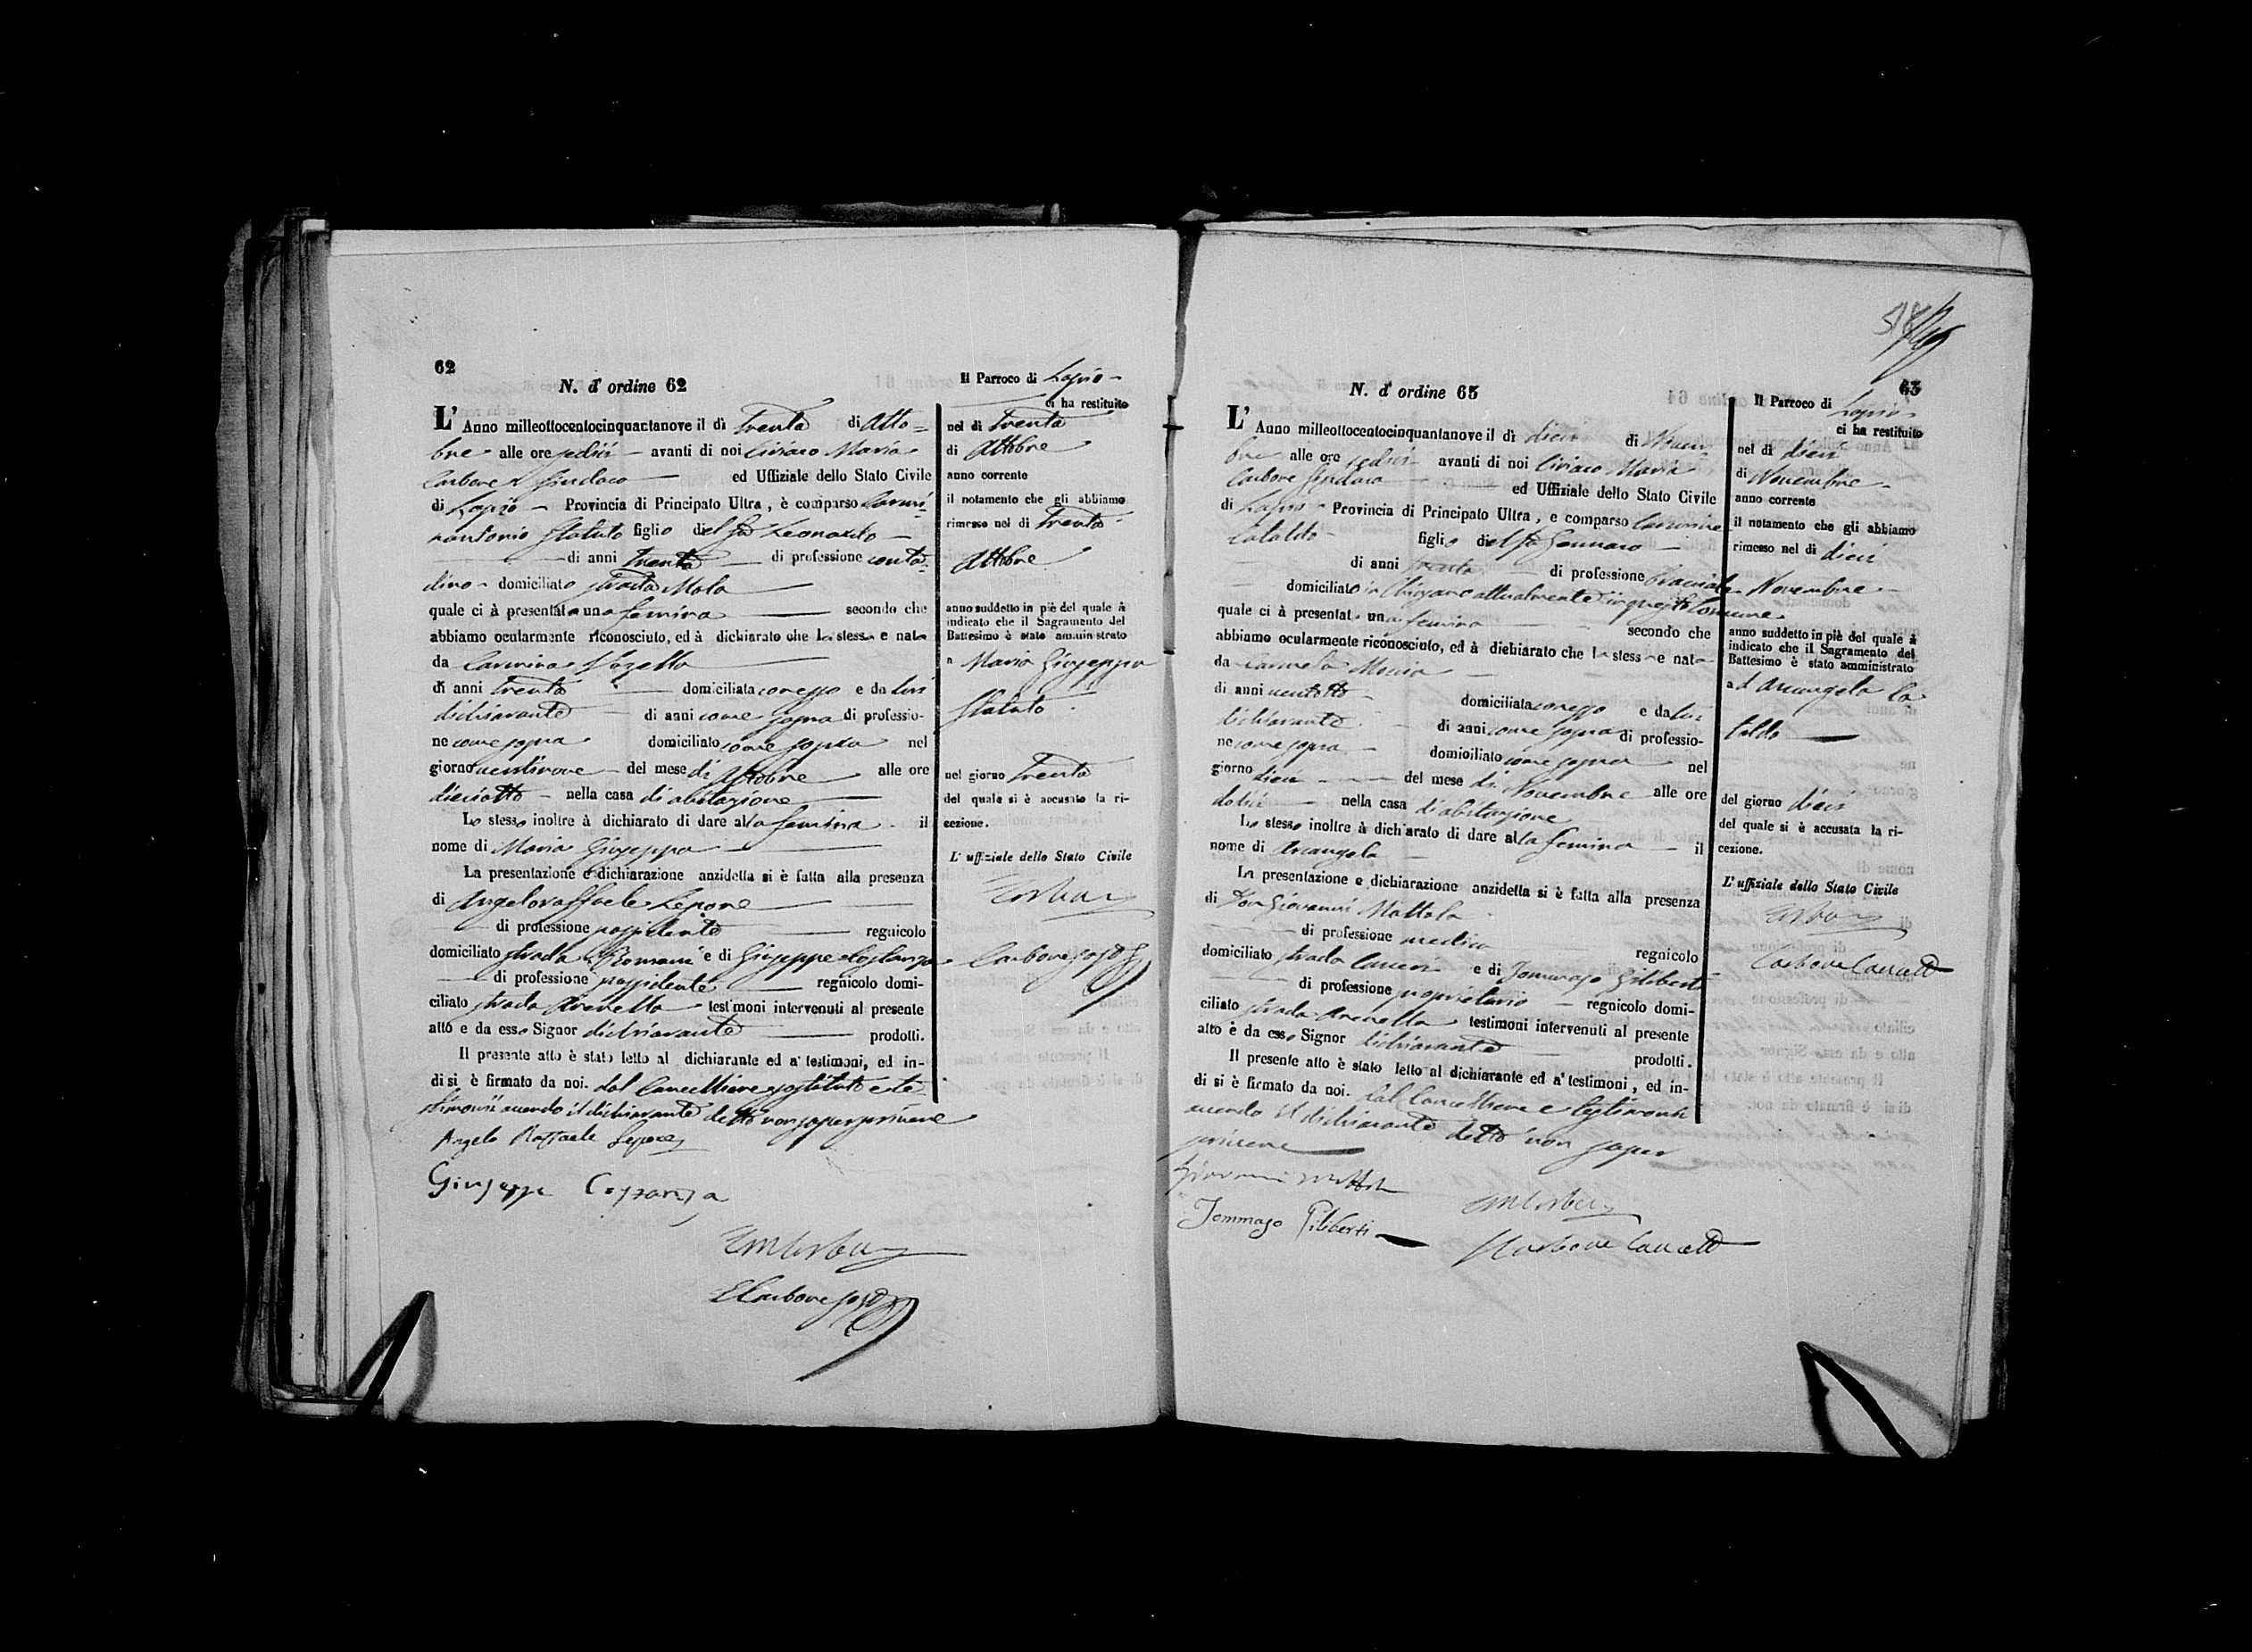 62
N. d' ordine 62
L' Anno milleottocentocinquantanove il dì trenta di Otto=
bre alle ore sedici avanti di noi Ciriaco Maria
Carbone Sindaco ed Uffiziale dello Stato Civile
di Lapio Provincia di Principato Ultra, è comparso Carmi=
nantonio Statuto figlio del fu Leonardo
di anni trenta di professione conta=
dino domiciliato strada Mola
quale ci à presentat a una femina secondo che
abbiamo ocularmente riconosciuto, ed à dichiarato che la stessa e nata
da Carmina
di anni trenta domiciliata con esso e da lui
dichiarante di anni come sopra di professio-
ne come sopra domiciliato come sopra nel
giorno ventinove del mese di Ottobre alle ore
dieciotto nella casa di abitazione
Lo stesso inoltre à dichiarato di dare alla femina il
nome di Maria Giuseppa
La presentazione e dichiarazione anzidetta si è fatta alla presenza
di Angeloraffaele Lepore
di professione possidente regnicolo
domiciliato strada Romani e di Giuseppe Costanza
di professione possidente regnicolo domi-
ciliato strada Arenella testimoni intervenuti al presente
atto e da esso Signor dichiarante prodotti.
Il presente atto è stato letto al dichiarante ed a' testimoni, ed in-
di si è firmato da noi. dal Cancelliere sostituto e te=
stimonii avendo il dichiarante detto non saper scrivere
Angelo Raffaele Lepore
Giuseppe Costanza
CMCarbone
Carbone sost
Il Parroco di Lapio
ci ha restituito
nel dì trenta
di Ottobre
anno corrente
il notamento che gli abbiamo
rimesso nel dì trenta
Ottobre
anno suddetto in piè del quale à
indicato che il Sagramento del
Battesimo è stato amministrato
a Maria Giuseppa
Statuto
nel giorno trenta
del quale si è accusato la ri-
cezione.
L' uffiziale dello Stato Civile
Carbone
Carbone sost
63
N. d' ordine 63
L' Anno milleottocentocinquantanove il dì dieci di Novem=
bre alle ore sedici avanti di noi Ciriaco Maria
Carbone Sindaco ed Uffiziale dello Stato Civile
di Lapio Provincia di Principato Ultra, e comparso Carmine
Cataldo figlio del fu Gennaro
di anni trenta di professione bracciale
domiciliato in Chiusano attualmente in questo Comune
quale ci à presentat a una femina secondo che
abbiamo ocularmente riconosciuto, ed à dichiarato che la stessa e nata
da Carmela
di anni ventotto domiciliata con esso e da lui
dichiarante di anni come sopra di professio-
ne come sopra domiciliato come sopra nel
giorno dieci del mese di Novembre alle ore
dodici nella casa di abitazione
Lo stesso inoltre à dichiarato di dare alla femina il
nome di Arcangela
La presentazione e dichiarazione anzidetta si è fatta alla presenza
di Don Giovanni Mottola
di professione medico regnicolo
domiciliato strada e di Tommaso Giliberti
di professione proprietario regnicolo domi-
ciliato strada Arenella testimoni intervenuti al presente
atto e da esso Signor dichiarante prodotti.
Il presente atto è stato letto al dichiarante ed a' testimoni, ed in-
di si è firmato da noi. dal Cancelliere e testimonii
avendo il dichiarante detto non saper
scrivere
Giovanni Mottola
Tommaso Giliberti
CMCarbone
Carbone Cancell
Il Parroco di Lapio
ci ha restituito
nel dì dieci
di Novembre
anno corrente
il notamento che gli abbiamo
rimesso nel dì dieci
Novembre
anno suddetto in piè del quale à
indicato che il Sagramento del
Battesimo è stato amministrato
ad Arcangela Ca
taldo
del giorno dieci
del quale si è accusata la ri-
cezione.
L' uffiziale dello Stato Civile
Carbone
Carbone Cancell